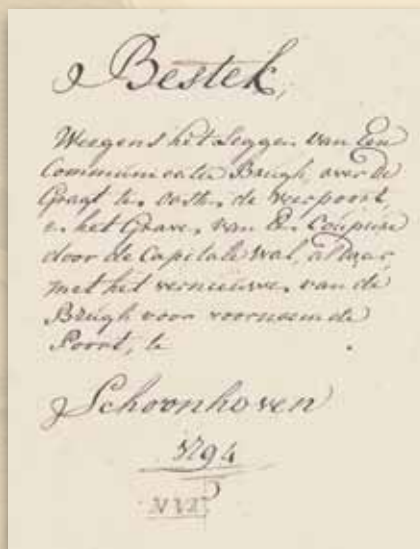 Bestek,
Weegens het Leggen van Een
Communicatie Brugh, over de
Gragt te, ooste, de veerpoort,
e, het Grave, van Een Coupure
door de Capitale Wal, aldaar,
met het vernieuwe, van de
Brugh voor voornoemde
Poort, te
Schoonhoven
1794